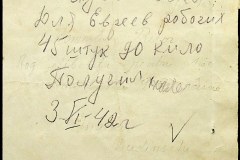 Для Евреев робочих
45 штук до кило
Получил
3-VI-42г